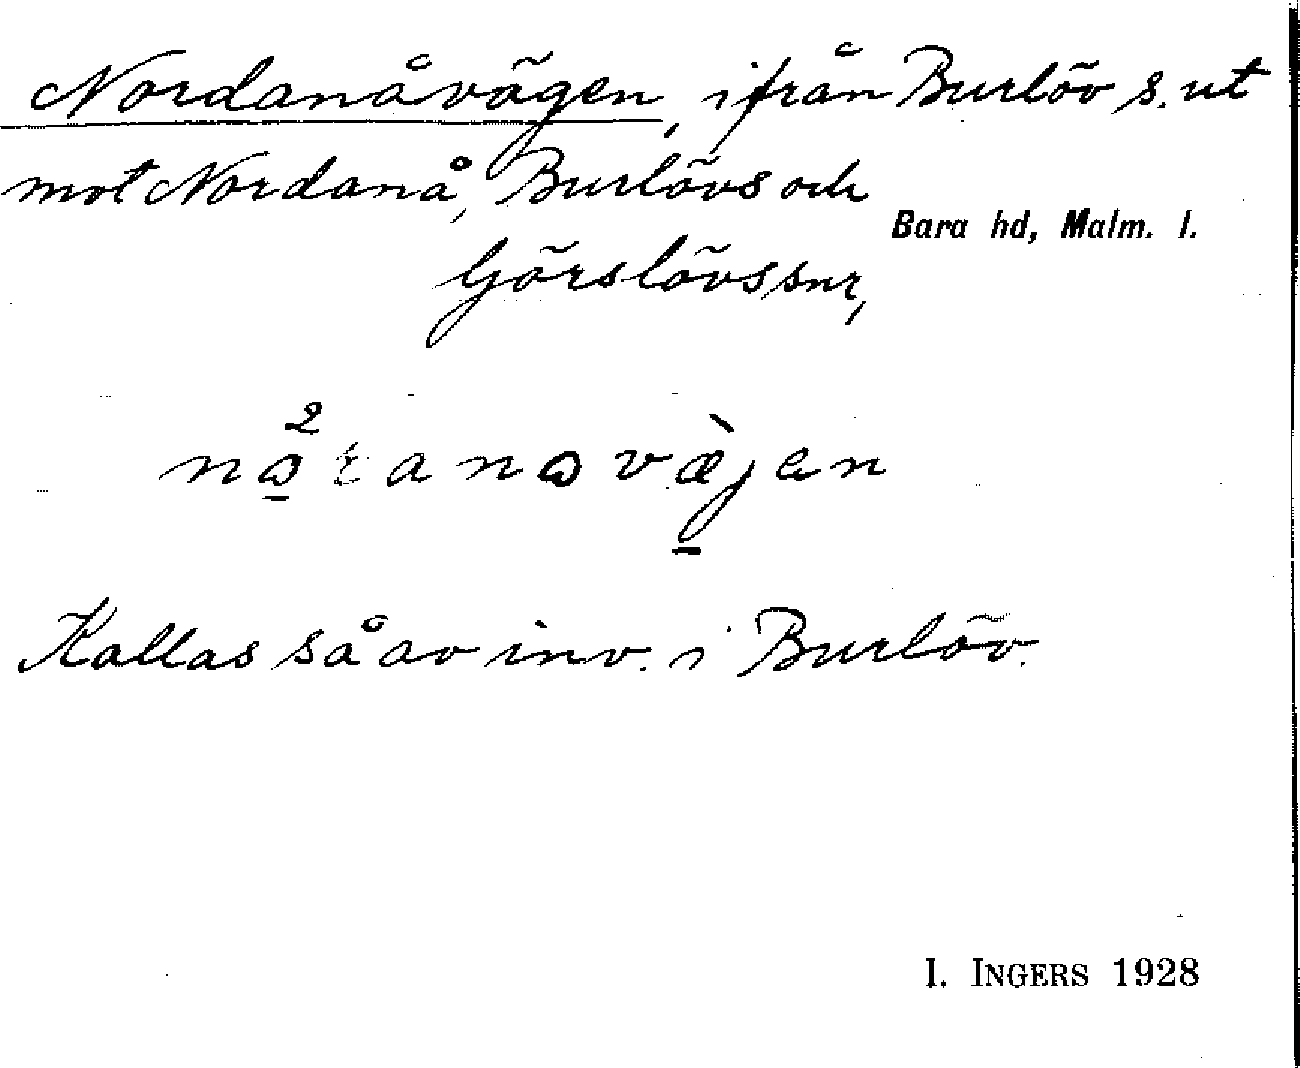 Nordanåvägen, ifrån Burlöv s. ut
mot Nordanå, Burlövs och
Bara hd, Malm. l.
Görslövs snr,
Kallas så av inv. i Burlöv.
I. INGERS 1928